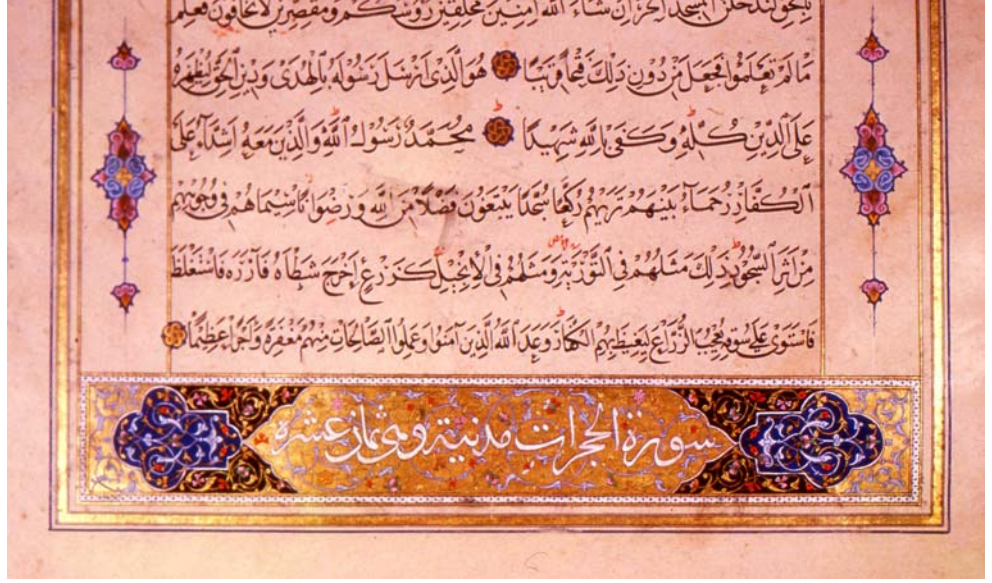 بالحق لتدخلن المسجد الحرام إن شاء الله آمنين محلقين رؤسكم ومقصرين لا تخافون فعلم
ما لم تعلموا فجعل من دون ذلك فتحا قريبا هو الذي أرسل رسوله بالهدى ودين الحق ليظهره
على الدين كله وكفى بالله شهيدا محمد رسول الله والذين معه أشداء على
الكفار رحماء بينهم تريهم ركعا سجدا يبتغون فضلا من الله ورضوانا سيماهم في وجوههم
من أثر السجود ذلك مثلهم في التورية ومثلهم في الإنجيل كزرع أخرج شطأه فآزره فاستغلظ
فاستوى على سوقه يعجب الزراع ليغيظ بهم الكفار وعد الله الذين آمنوا وعملوا الصالحات منهم مغفرة وأجرا عظيما
سورة الحجرات مدنية وهي ثمان عشرة